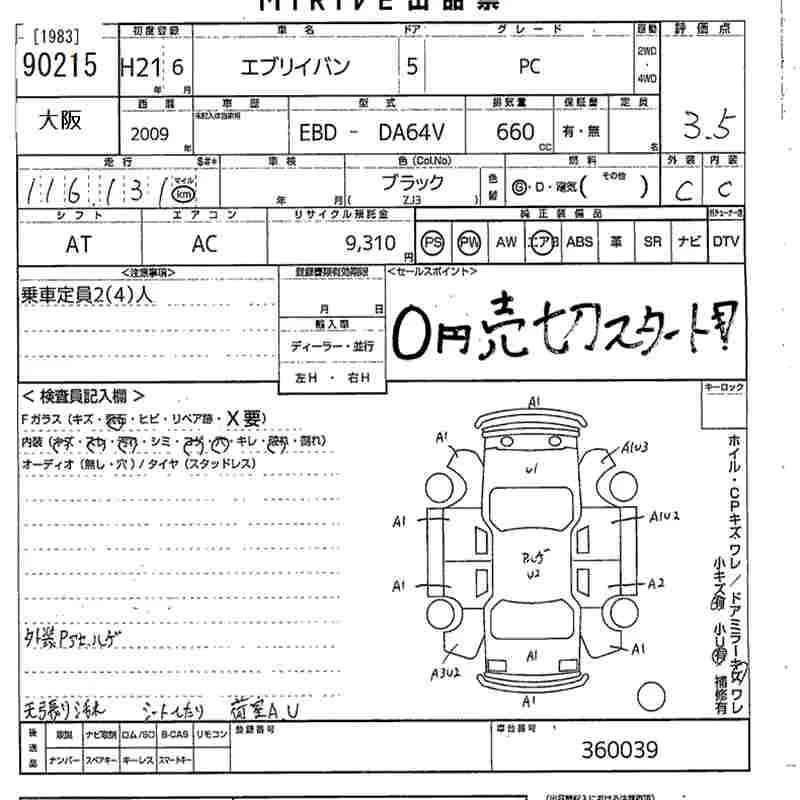 MIRIVE出品票
[1983]
90215
初度登録
車名
ドア
グレード
駆動
評価点
H21 6
年 月
エブリイバン
5
PC
2WD
・
4WD
3.5
大阪
西暦
車歴
型式
排気量
保証書
定員
未記入は自家用
2009 年
EBD - DA64V
660 CC
有・無
名
走行
$#*
車検
色(Col.No)
燃料
外装
内装
116,131
マイル
km
年 月
ブラック
( ZJ3 )
色替
G・D・電気( その他 )
C
C
シフト
エアコン
リサイクル預託金
純正装備品
AT
AC
9,310 円
PS
PW
AW
エアB
ABS
革
SR
ナビ
DTV
<注意事項>
登録書類有効期限
<セールスポイント>
乗車定員2(4)人
月 日
輸入車
ディーラー・並行
左H ・ 右H
0円売切スタート!!
<検査員記入欄>
キーロック
Fガラス(キズ・飛石・ヒビ・リペア跡・X要)
内装(キズ・スレ・汚れ・シミ・コゲ・穴・キレ・破れ・割れ)
オーディオ(無し・穴)/タイヤ(スタッドレス)
A1
A1
A1U3
U1
A1
A1U2
U2
A1
A2
A1
A3U2
A1
A1
ホイル・CPキズワレ/ドアミラーキズワレ
小キズ有 小U有 補修有
外装Pハゲ
天張り汚れ シートヘたり 荷室A,U
後送品
取説
ナビ取説
ロム/SD
B-CAS
リモコン
ナンバー
スペアキー
キーレス
スマートキー
登録番号
車台番号
360039